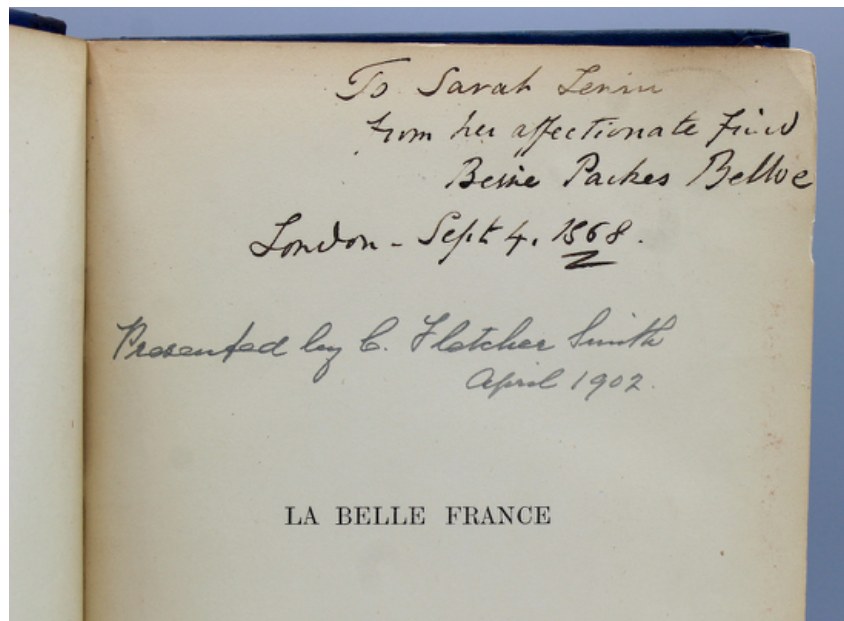 To Sarah Lewin
from her affectionate friend
Bessie Parkes Belloc
London - Sept 4. 1868.
Presented by C. Fletcher Smith
April 1902.
LA BELLE FRANCE